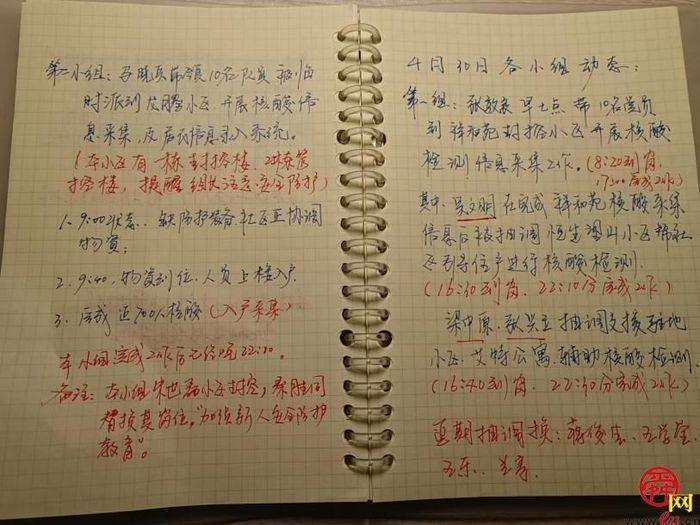 第二小组：带领10名队员被临
时派到发腾小区开展核酸信
息采集，及居民信息录入系统。
(本小区有一栋封控楼，2栋管
控楼，提醒组员注意安全防护)
1. 9:00状态.. 缺防护装备社区正协调
物资；
2. 9:40，物资到位、人员上楼入户
3. 完成近700人核酸(入户采集)
本小组完成工作后已经晚22:10.
备注：本小组 小区封控，
替换其岗位，"加强新人安全防护
教育"。
4月30日各小组动态：
第一组：张敬东早七点带10名党员
到祥和苑封控小区开展核酸
检测信息采集工作。(8:20到岗，
17:00完成工作)
其中，吴文明在完成祥和苑核酸采集
信息后被抽调恒生望山小区帮社
区引导住户进行核酸检测.
(16:30到岗. 22:10分完成工作)
梁中原、张兴立抽调支援驻地
小区.艾特公寓.辅助核酸检测.
(16:40到岗. 22:30分完成工作)
近期抽调换：
王乐、
舜
网